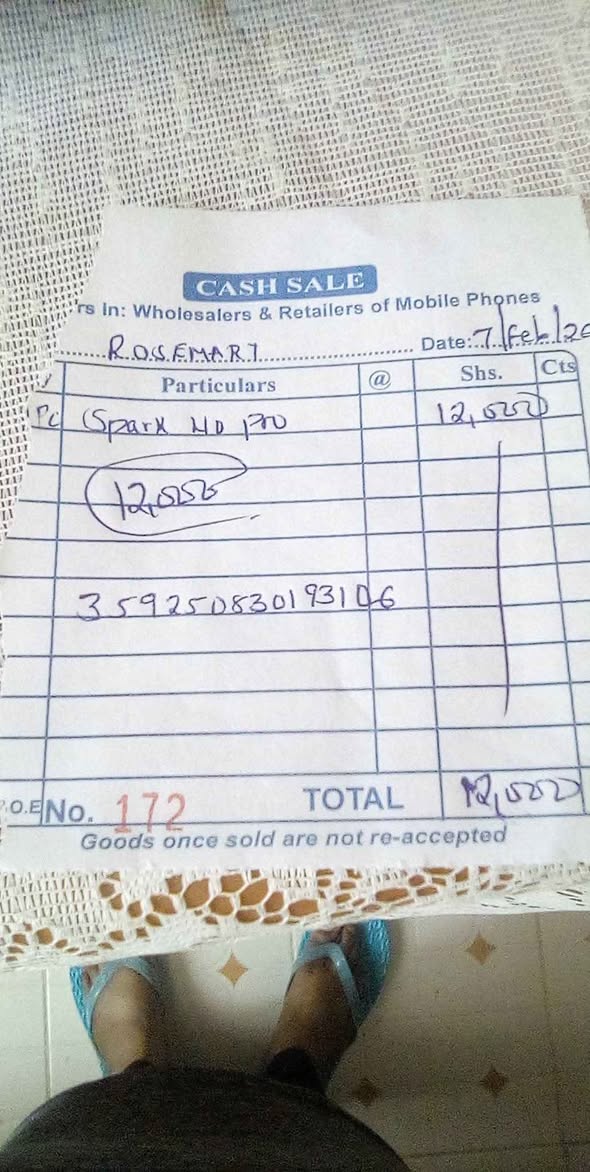 CASH SALE
rs In: Wholesalers & Retailers of Mobile Phones
ROSEMARY Date: 7/Feb/20
Particulars @ Shs. Cts
Pc Spark pro 12,000
12,000
359250830193106
P.O.E No. 172 TOTAL 12,000
Goods once sold are not re-accepted